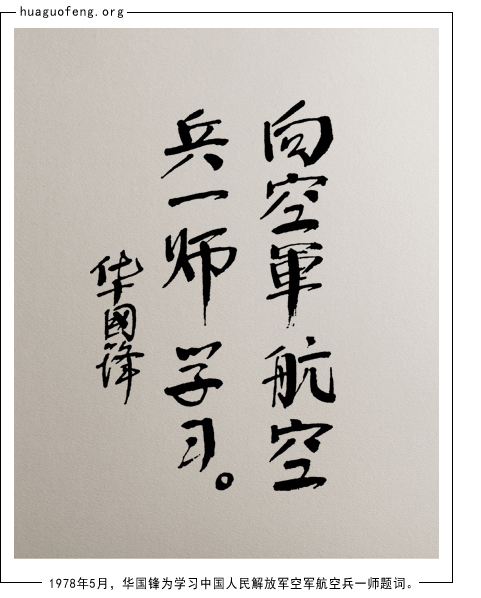 huaguofeng.org
向空軍航空
兵一师学习。
华國锋
1978年5月，华国锋为学习中国人民解放军空军航空兵一师题词。